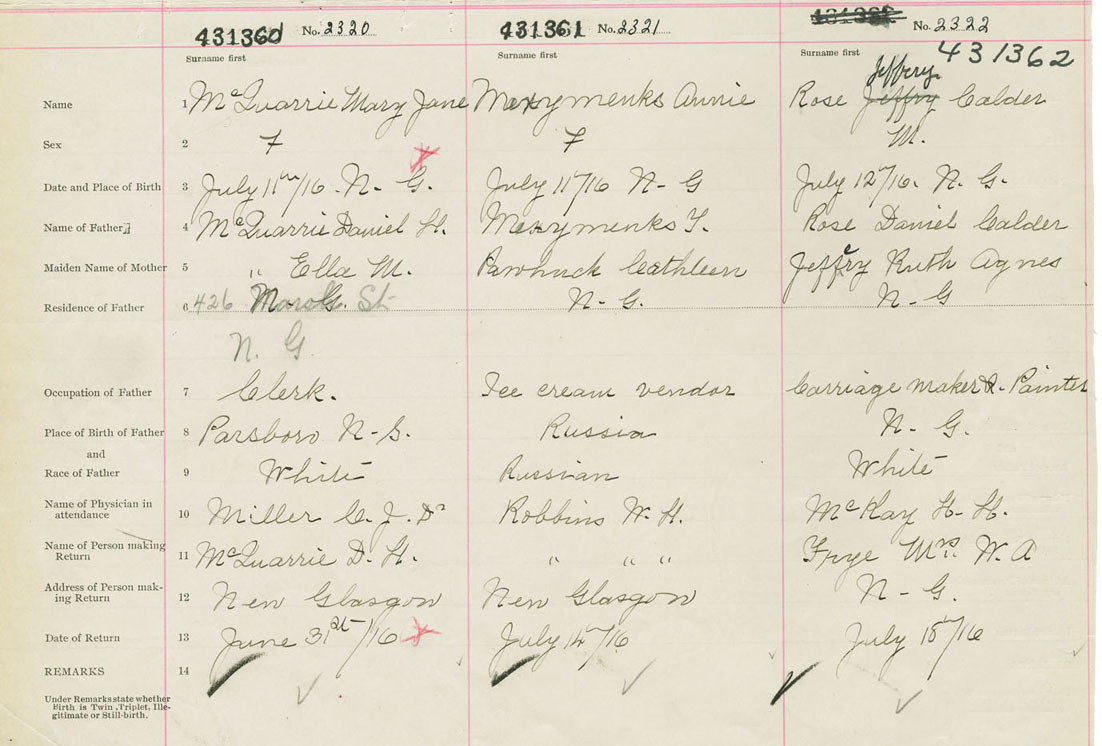 431360 No. 2320 431361 No. 2321 No. 2322
Surname first Surname first Surname first 431362
Jeffery
Name 1 McQuarrie Mary Jane Merymenks Annie Rose Jeffry Calder
Sex 2 F F M.
Date and Place of Birth 3 July 11th/16. N-G. July 11/16 N-G July 12/16. N.G.
Name of Father 4 McQuarrie Daniel H. Merymenks T. Rose Daniel Calder
Maiden Name of Mother 5 " Ella M. Cathleen Jeffery Ruth Agnes
Residence of Father 6 426 St N-G. N-G
N. G.
Occupation of Father 7 Clerk. Ice cream vendor Carriage maker & Painter
Place of Birth of Father 8 Parsboro N-S. Russia N-G.
and
Race of Father 9 White Russian White
Name of Physician in
attendance 10 Miller C. J. Dr Robbins W. H. McKay H-H.
Name of Person making
Return 11 McQuarrie D. H. " " " Frye Mrs. W. A
Address of Person mak-
ing Return 12 New Glasgow New Glasgow N-G.
Date of Return 13 June 31st/16 July 14/16 July 15/16
REMARKS 14
Under Remarks state whether
Birth is Twin, Triplet, Ille-
gitimate or Still-birth.